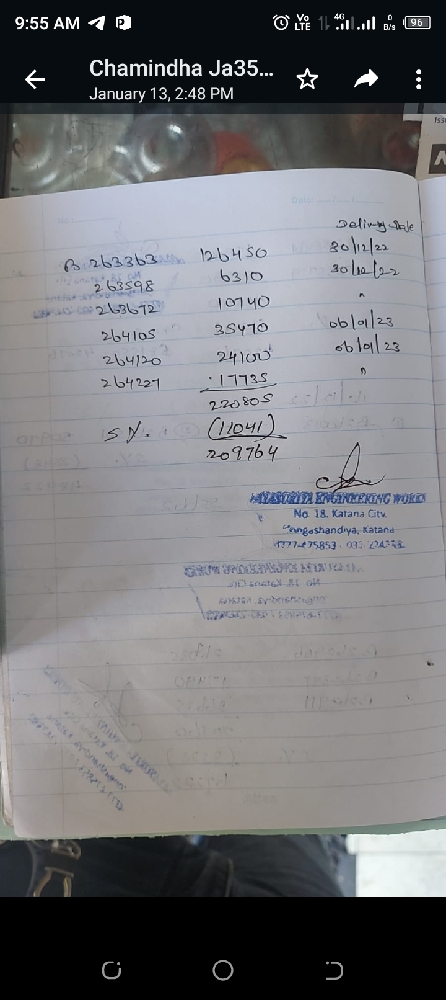 9:55 AM
Vo LTE 4G 0 B/s 96
Chamindha Ja35...
January 13, 2:48 PM
Delivery Date
B. 263363 126450 30/12/22
263598 6310 30/12/22
263672 10740 "
264105 35470 06/01/23
264120 24100 06/01/23
264227 17735 "
220805
5%. (11041)
209764
JAYASURIYA ENGINEERING WORKS
No 18, Katana City,
Katana